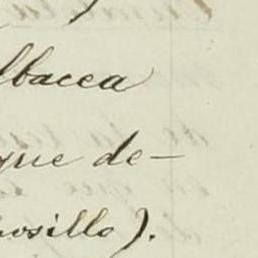 lbacea
que de-
nosillo).